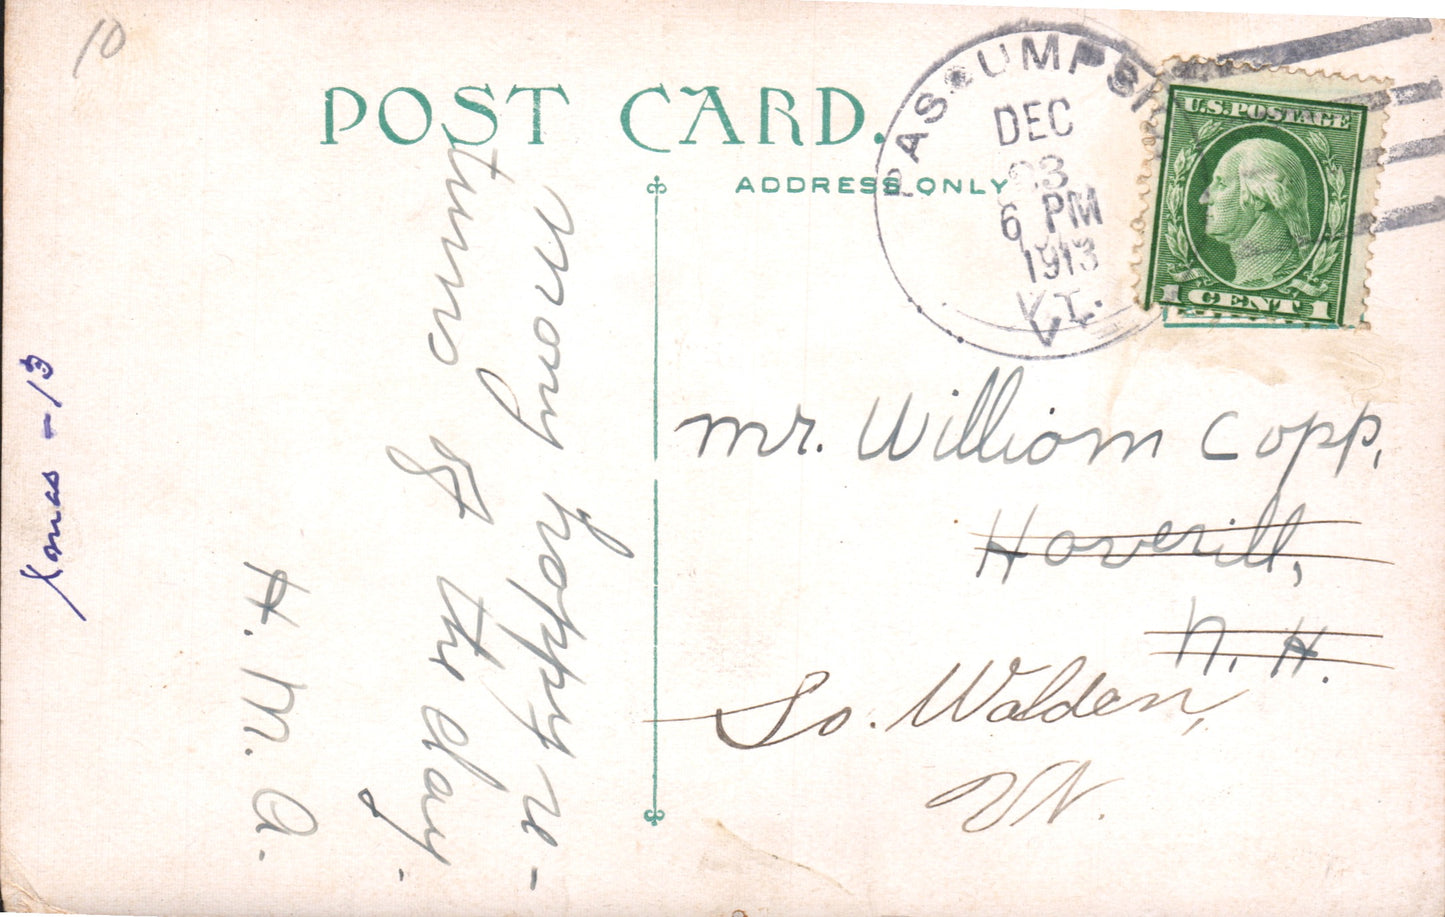 10
POST CARD.
ADDRESS ONLY
PASSUMPSIC
DEC
23
6 PM
1913
VT.
U.S. POSTAGE
1 CENT 1
Many happy re-
turns of the day.
H. M. A.
Xmas - 13
Mr. William Copp,
Haverill,
N. H.
So. Walden,
Vt.